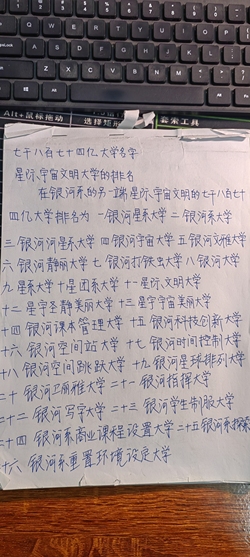 Alt+鼠标拖动 选择矩形 套索工具
七千八百七十四亿大学名字
星际宇宙文明大学的排名
在银河系的另一端星际宇宙文明的七千八百七十
四亿大学排名为 一银河星系大学 二 银河系大学
三 银河河星系大学 四 银河宇宙大学 五 银河文雅大学
六 银河静丽大学 七 银河打铁虫大学 八 银河大学
九 星系大学 十 星团系大学 十一 星际文明大学
十二 星宇圣静美丽大学 十三 星宇宇宙美丽大学
十四 银河课本管理大学 十五 银河科技创新大学
十六 银河空间站大学 十七 银河时间控制大学
十八 银河空间跳跃大学 十九 银河星球排列大学
二十 银河卫丽雅大学 二十一 银河指挥大学
二十二 银河写字大学 二十三 银河学生制服大学
二十四 银河系商业课程设置大学 二十五 银河系探索
十六 银河系重置环境设定大学